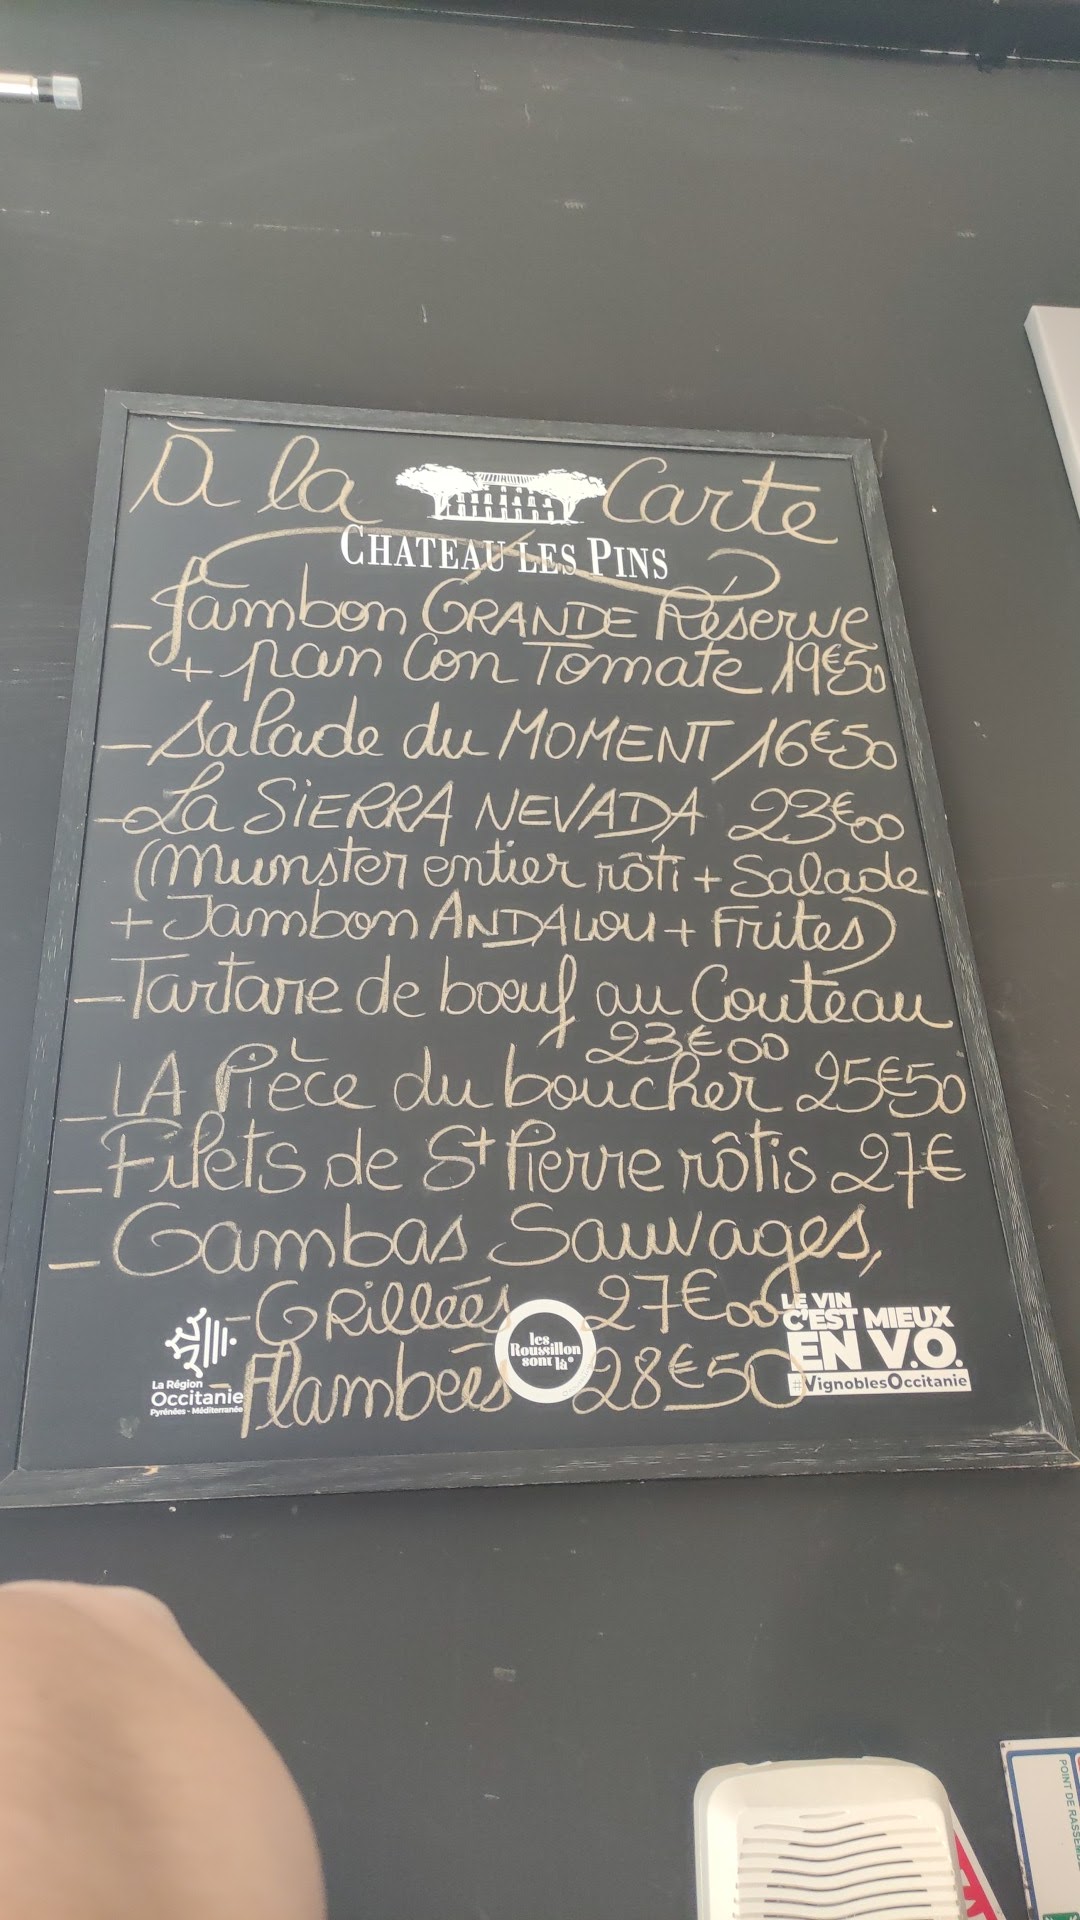 À la Carte
CHATEAU LES PINS
- Jambon GRANDE Réserve
+ pan Con Tomate 19€50
- Salade du MOMENT 16€50
- La SiERRA NEVADA 23€00
(Munster entier rôti + Salade
+ Jambon ANDALOU + Frites)
- Tartare de bœuf au Couteau
23€00
- LA Pièce du boucher 25€50
- Filets de St Pierre rôtis 27€
- Gambas Sauvages,
- GRillées 27€00
- Flambées 28€50
La Région
Occitanie
Pyrénées - Méditerranée
les
Roussillon
sont là
LE VIN
C'EST MIEUX
EN V.O.
#VignoblesOccitanie
POINT DE RASSE